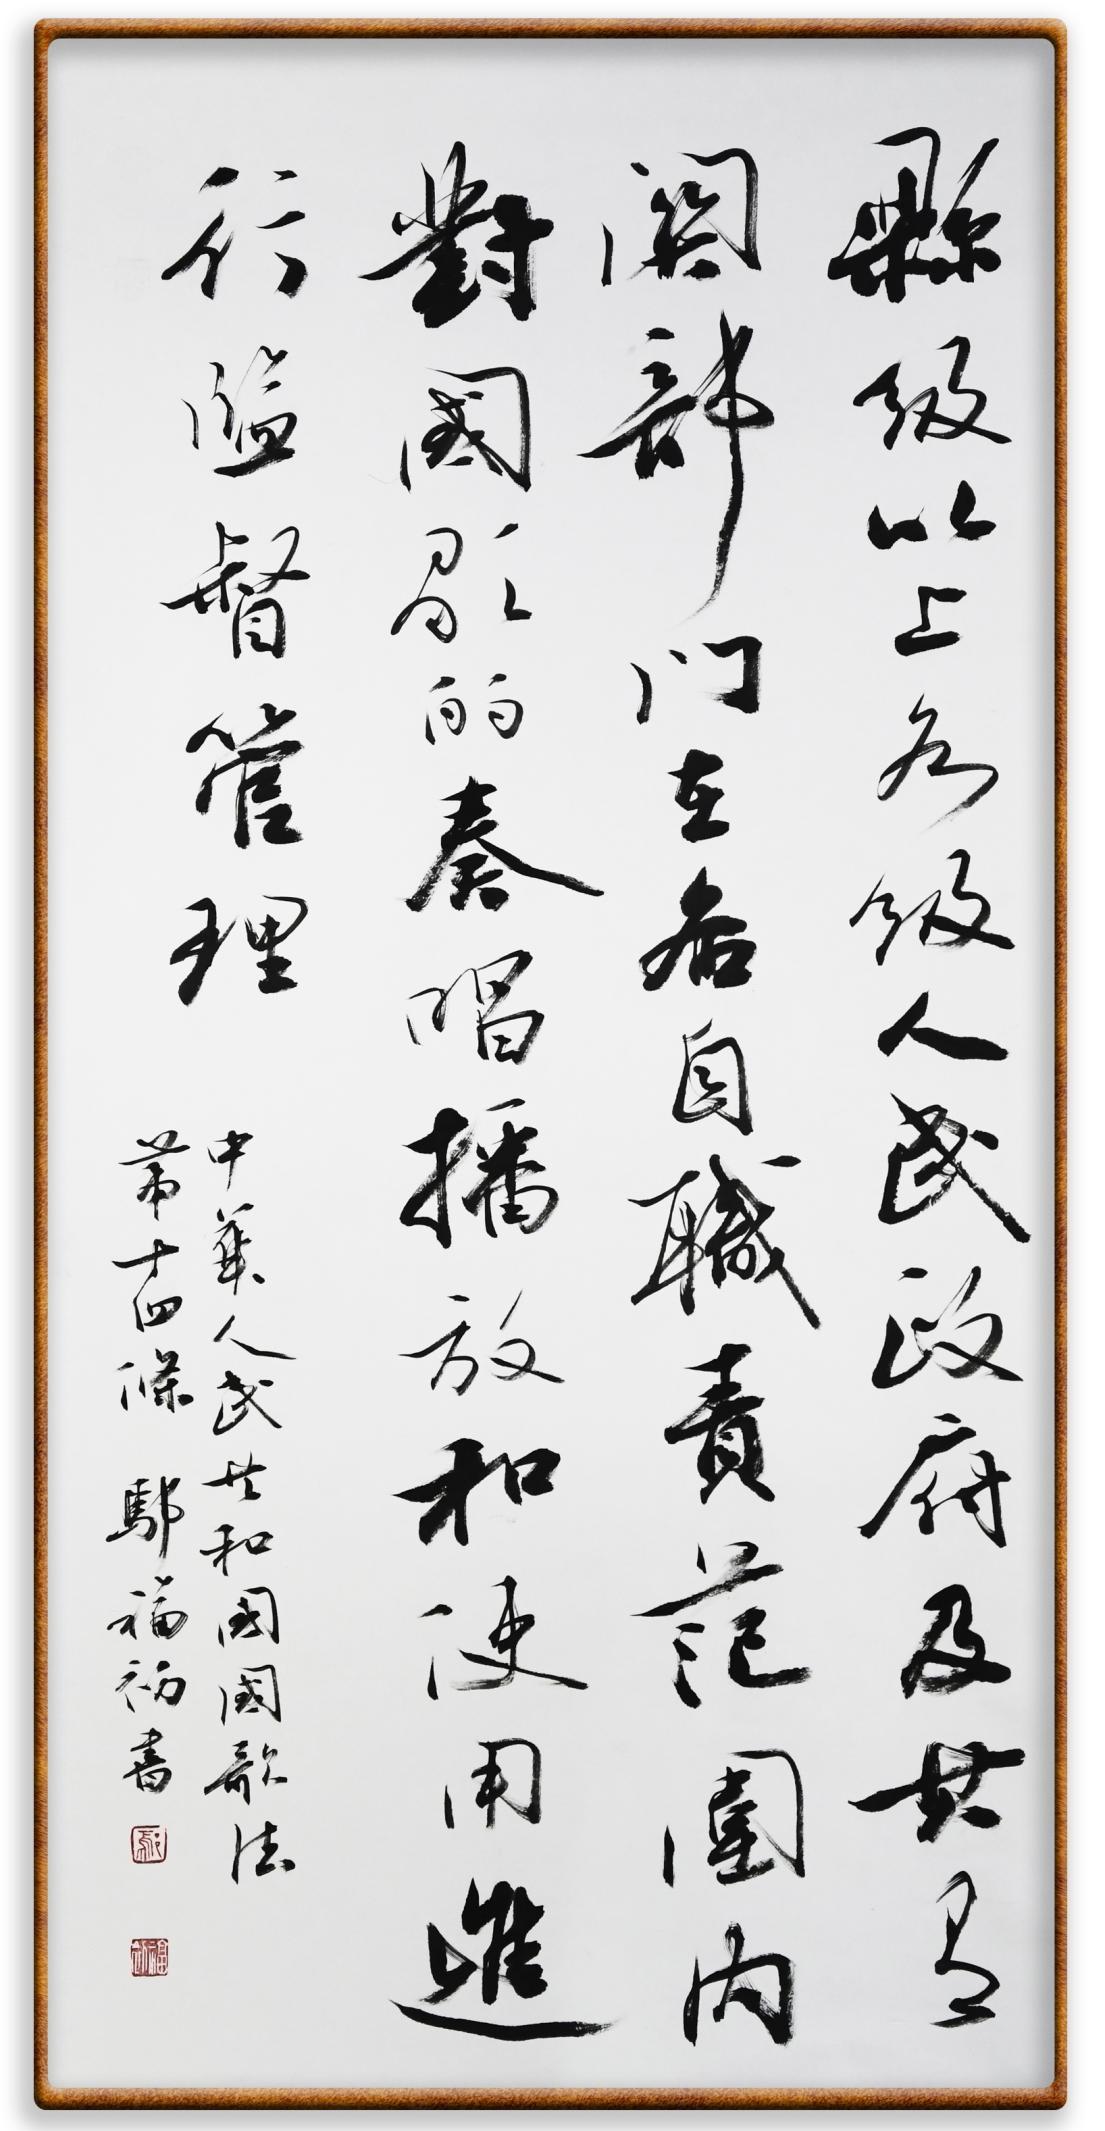 縣级以上各级人民政府及其有
関部门在各自職責范圍内
對國歌的奏唱播放和使用進
行監督管理
中華人民共和國國歌法
第十四條 鄢福初書
鄢
福初